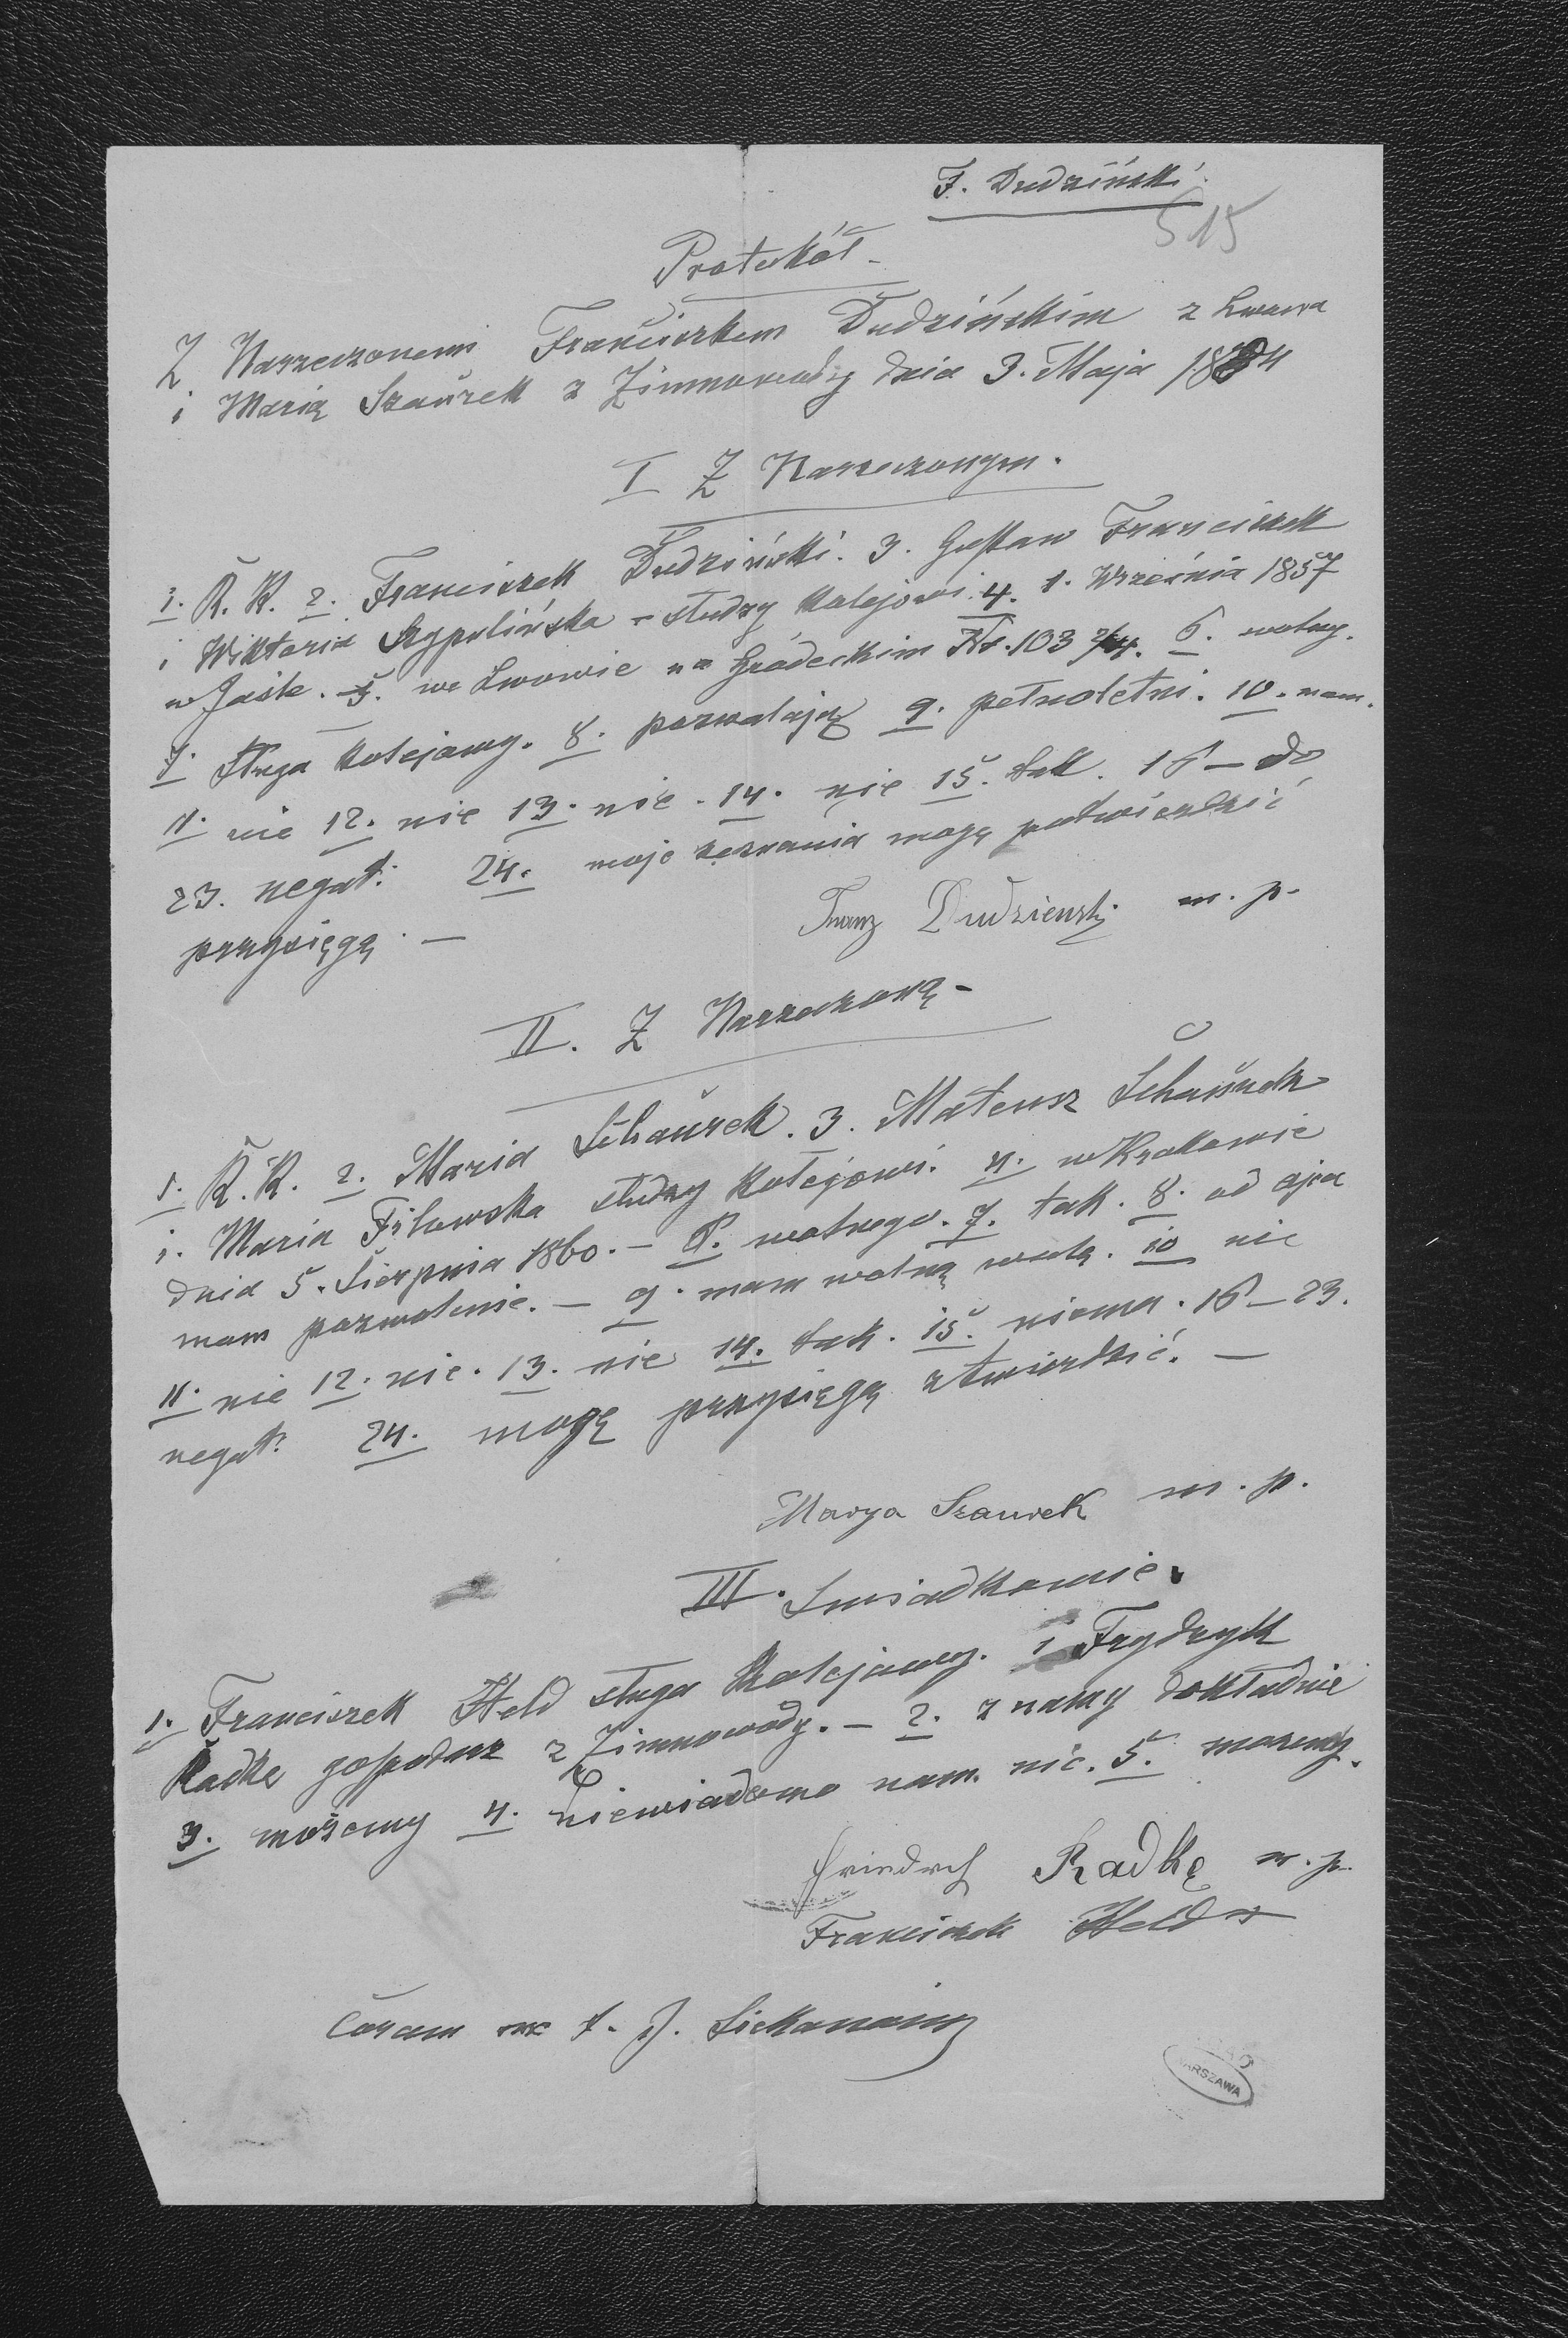 F. Dudziński
515
Protokół
Z Narzeczonemi Franciszkem Dudzińskim z Lwowa
i Marią Szaurek z Zimnowody dnia 3. Maja 1884
I Z Narzeczonym.
1. R. K. 2. Franciszek Dudziński. 3. Gustaw Franciszek
i Wiktoria Szypulińska - słudzy kolejowi. 4. 1. Września 1857
w Jaśle. 5. we Lwowie na Gródeckim Nr. 103 2/4. 6. wolny.
7. Sługa kolejowy. 8. pozwalają 9. pełnoletni. 10. mam.
11. nie 12. nie 13. nie. 14. nie 15. tak. 16 - do
23. negat: 24. moje zeznania mogę potwierdzić
przysięgą. -
Franz Dudzienski m. p.
II. Z Narzeczoną -
1. R. K. 2. Maria Schaurek. 3. Mateusz Schaurek
i. Maria Filowska słudzy kolejowi. 4. w Krakowie
dnia 5. Sierpnia 1860. - 6. wolnego. 7. tak. 8. od ojca
mam pozwolenie. - 9. mam wolną wolę. 10 nie
11. nie 12. nie. 13. nie 14. tak. 15. niema. 16 - 23.
negat: 24. mogę przysięgą ztwierdzić. -
Marya Szaurek m. p.
III. Swiadkowie.
1. Franciszek Held sługa kolejowy. i Frydryk
Radke gospodarz z Zimnowody. - 2. znamy dokładnie
3. możemy 4. niewiadomo nam. nic. 5. możemy.
Friedrch Radke m. p.
Franciszek Held
Coram me t. J.
WARSZAWA